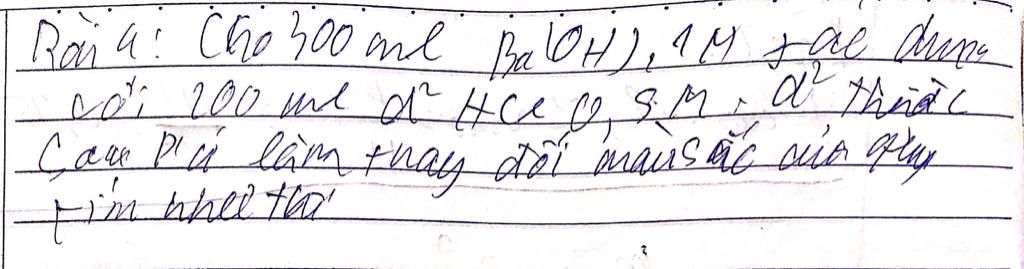 Bài 4: Cho 300 ml Ba(OH)₂ 1M tác dụng
với 200 ml d² HCl 0,5M. d² thuốc
sau pứ làm thay đổi màu sắc của quỳ
tím như thế